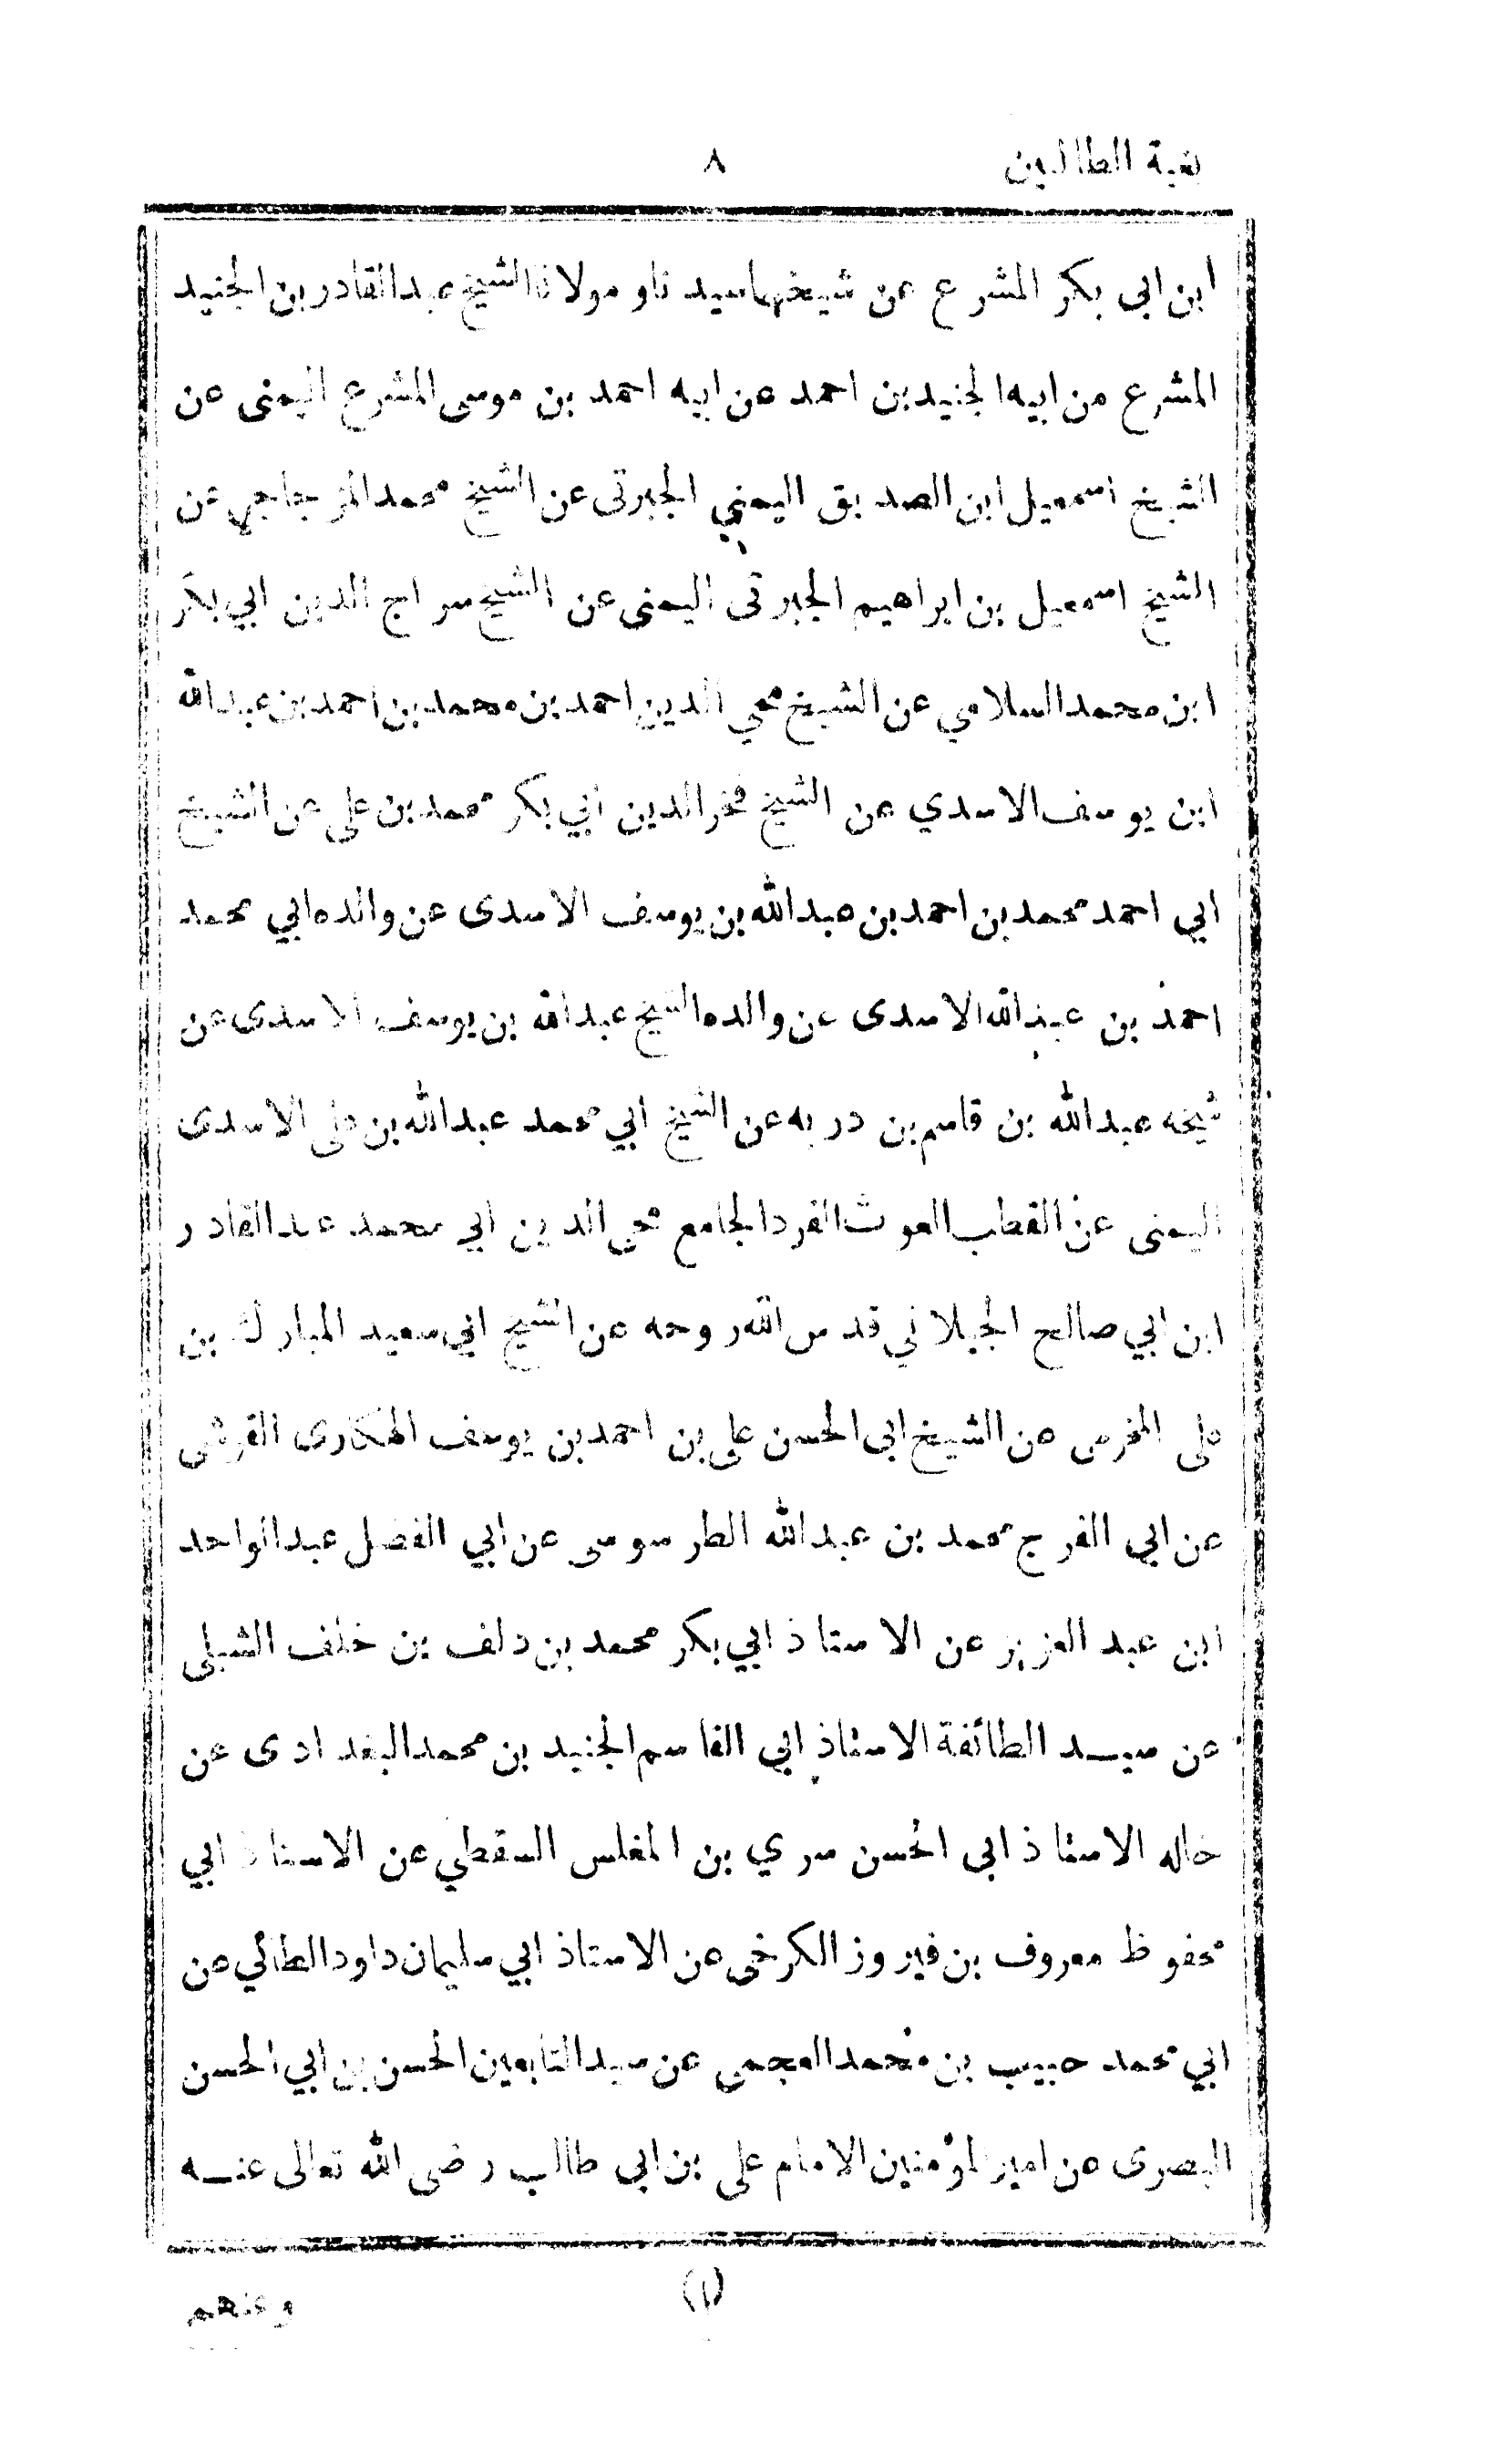 بغية الطالبين ٨
ابن ابى بكر المشرع عن شيخهما سيدنا و مولانا الشيخ عبد القادر بن الجنيد
المشرع من ابيه الجنيد بن احمد عن ابيه احمد بن موسى المشرع اليمنى عن
الشيخ اسمعيل ابن الصديق اليمني الجبرتى عن الشيخ محمد المزجاجي عن
الشيخ اسمعيل بن ابراهيم الجبرتى اليمنى عن الشيخ سراج الدين ابي بكر
ابن محمد السلامي عن الشيخ محي الدين احمد بن محمد بن احمد بن عبد الله
ابن يوسف الاسدي عن الشيخ فخر الدين ابي بكر محمد بن على عن الشيخ
ابي احمد محمد بن احمد بن عبد الله بن يوسف الاسدى عن والده ابي محمد
احمد بن عبد الله الاسدى عن والده الشيخ عبد الله بن يوسف الاسدى عن
شيخه عبد الله بن قاسم بن دربه عن الشيخ ابي محمد عبد الله بن على الاسدى
اليمنى عن القطب الغوث الفرد الجامع محي الدين ابي محمد عبد القادر
ابن ابي صالح الجيلاني قدس الله روحه عن الشيخ ابي سعيد المبارك بن
على المخرمى عن الشيخ ابى الحسن على بن احمد بن يوسف الهكارى القرشى
عن ابي الفرج محمد بن عبد الله الطرسوسى عن ابي الفضل عبد الواحد
ابن عبد العزيز عن الاستاذ ابي بكر محمد بن دلف بن خلف الشبلى
عن سيد الطائفة الاستاذ ابي القاسم الجنيد بن محمد البغدادى عن
خاله الاستاذ ابى الحسن سري بن المغلس السقطي عن الاستاذ ابي
محفوظ معروف بن فيروز الكرخى عن الاستاذ ابي سليمان داود الطائي عن
ابي محمد حبيب بن محمد العجمى عن سيد التابعين الحسن بن ابي الحسن
البصرى عن امير المؤمنين الامام على بن ابى طالب رضى الله تعالى عنه
(١)
وعنهم